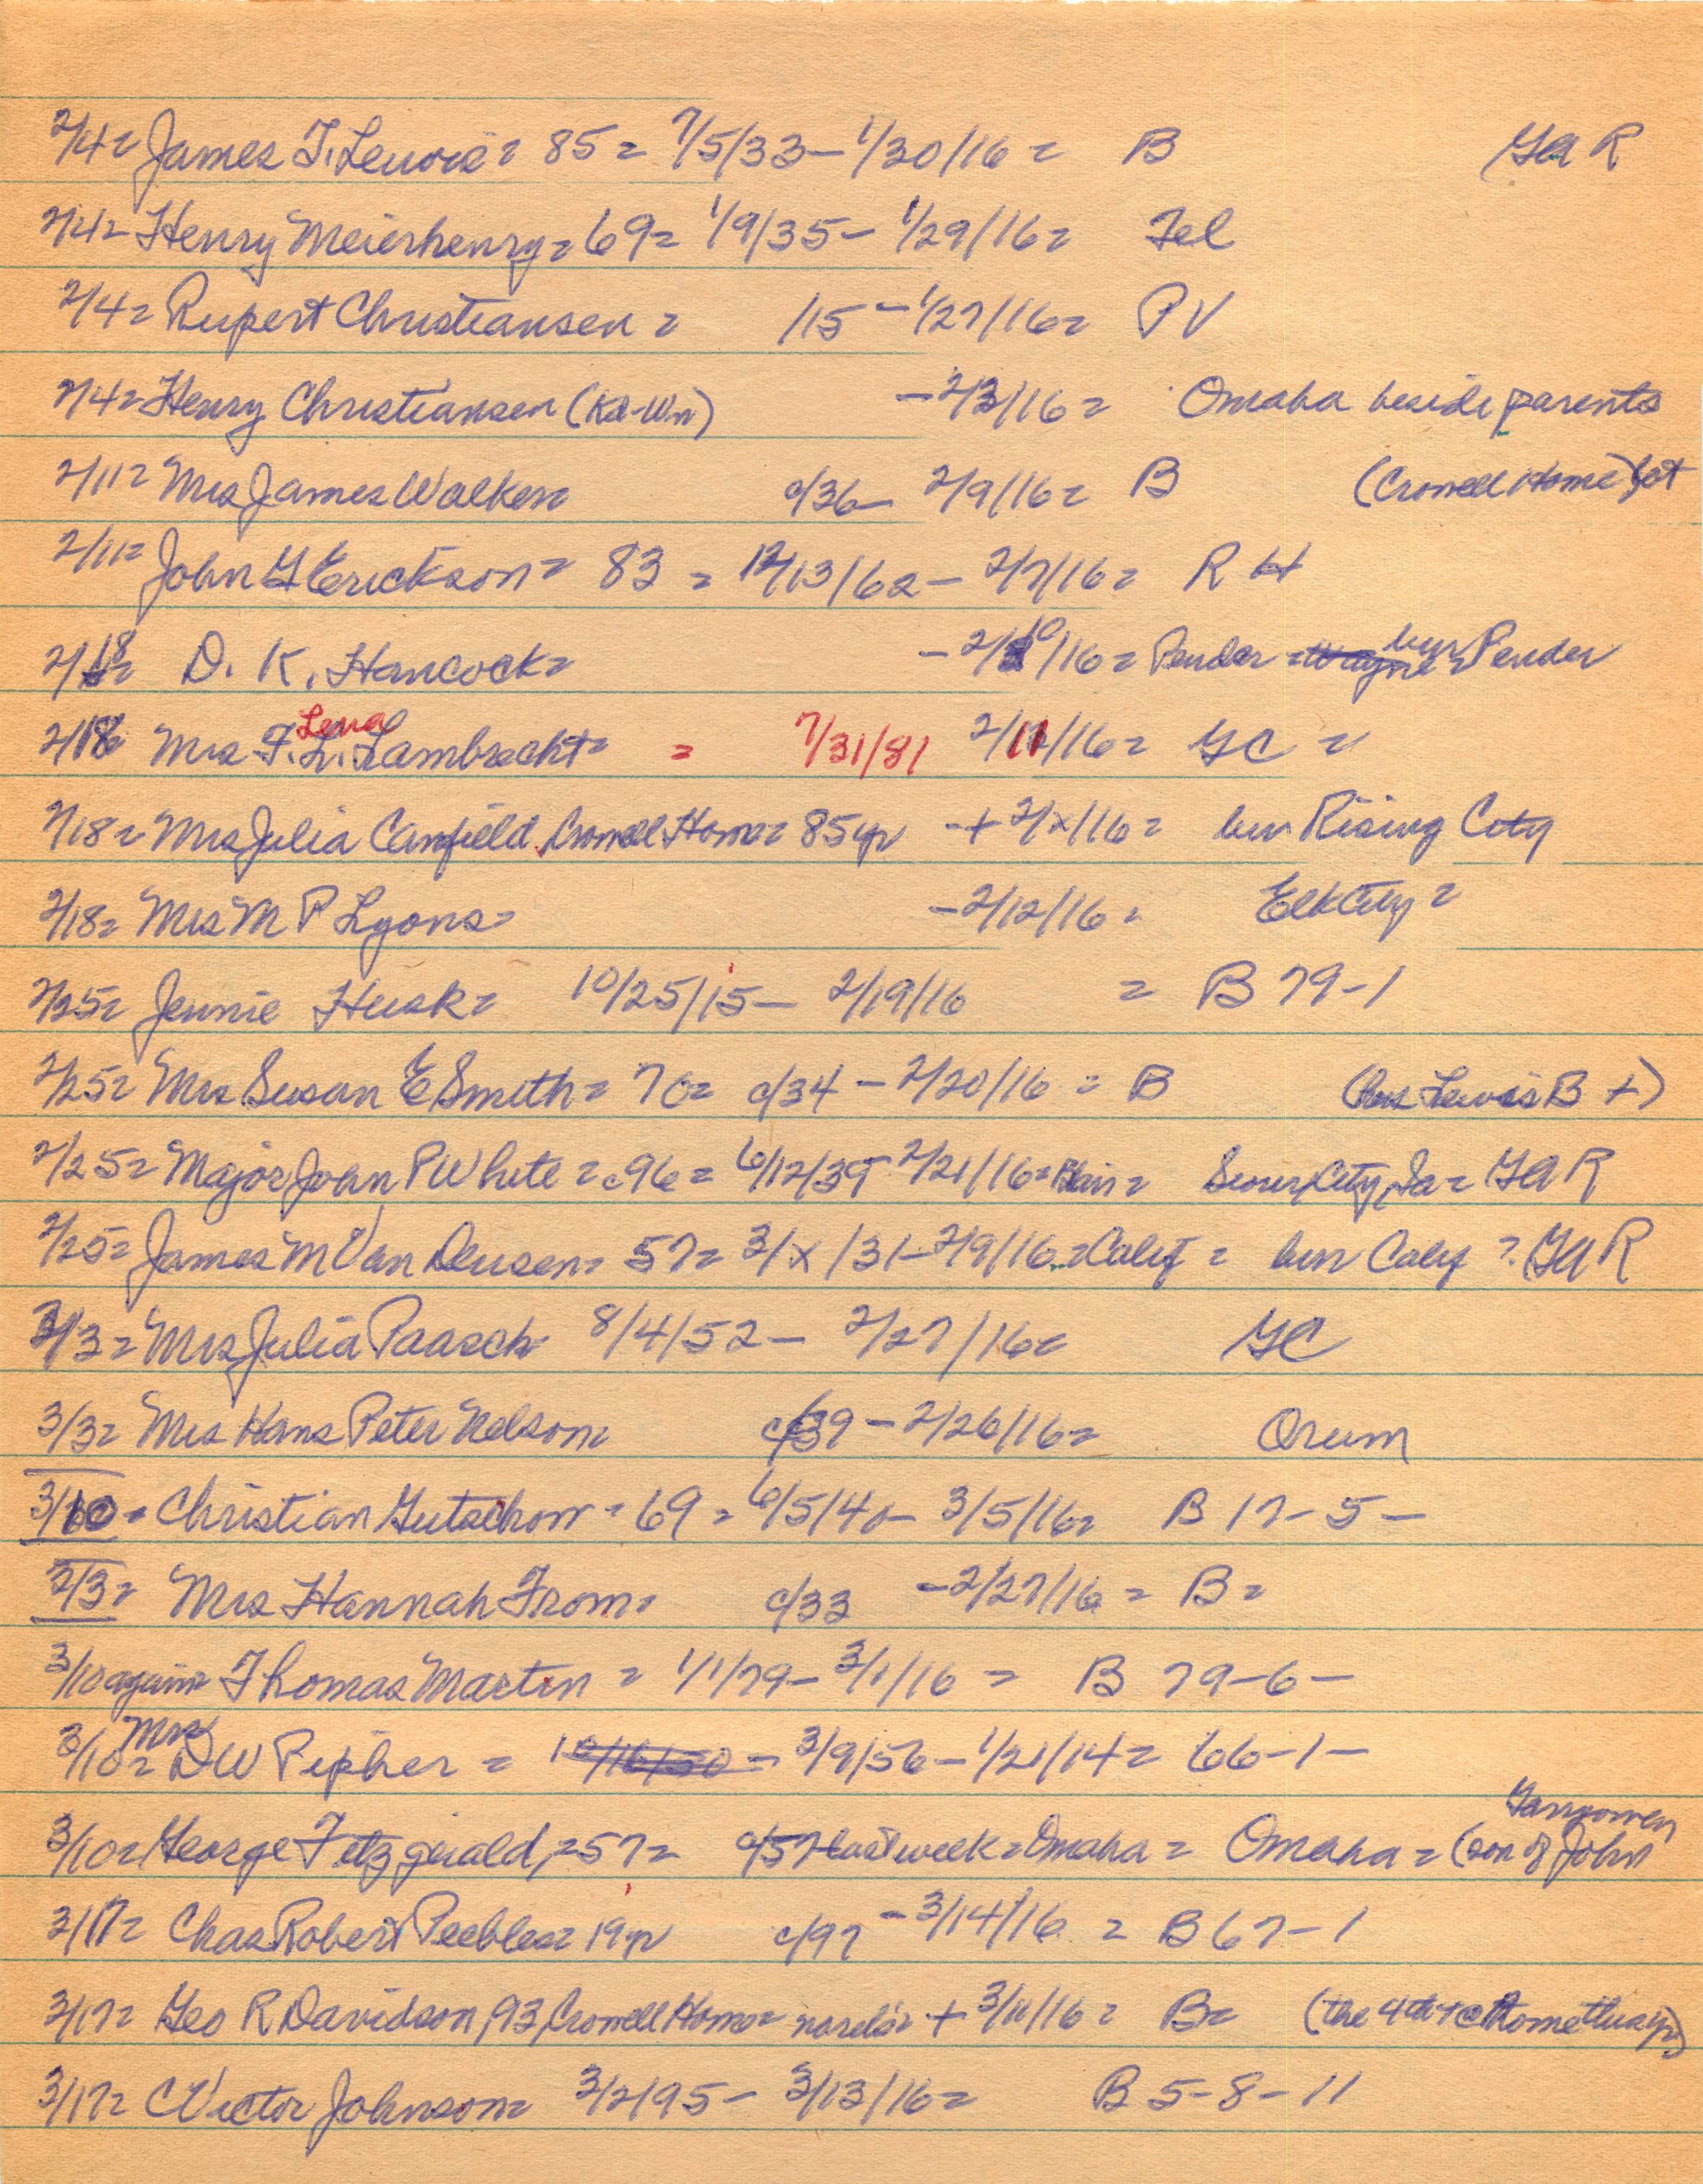 2/4= James T. Lenoie = 85 = 7/5/33 – 1/30/16 = B GAR
2/4= Henry Meierhenry = 69 = 1/9/35 – 1/29/16 = Tel
2/4= Rupert Christiansen = /15 – 1/27/16 = PV
2/4= Henry Christiansen (Kd-Wn) – 2/3/16 = Omaha beside parents
2/11= Mrs James Walker = c/36 – 2/9/16 = B (Crowell Home) lot
2/11= John G Erickson = 83 = 12/13/62 – 2/7/16 = R H
2/18= D. K. Hancock = – 2/10/16 = Pender = Wayne = bur Pender
2/18 Mrs F. L. Lena Lambrecht = = 7/31/81 2/11/16 = GC =
2/18= Mrs Julia Canfield, Crowell Home = 85 yr – + 2/x/16 = bur Rising City
2/18= Mrs M P Lyons = – 2/12/16 = Elk City =
2/25= Jennie Husk = 10/25/15 – 2/19/16 = B 79-1
2/25= Mrs Susan E Smith = 70 = c/34 – 2/20/16 = B (Lewis B +)
2/25= Major John P White = c96 = 6/12/39 – 2/21/16 = Blair = City, Ia = GAR
2/25= James M Van Deusen = 57 = 3/x/31 – 2/9/16 = Calif = bur Calif = GAR
3/3= Mrs Julia Paasch 8/4/52 – 2/27/16 = GC
3/3= Mrs Hans Peter Nelson = c/39 – 2/26/16 = Orum
3/10 = Christian Gutschow = 69 = 6/5/40 – 3/5/16 = B 17-5-
3/3= Mrs Hannah From = c/33 – 2/27/16 = B =
3/10 again = Thomas Martin = 1/1/79 – 3/1/16 = B 79-6-
3/10= Mrs DW Pepher = 10/16/50 – 3/9/56 – 1/21/14 = 66-1-
3/10= George Fitzgerald, = 57 = c/57 last week = Omaha = Omaha = (son of John Garryowen
3/17= Chas Robert Peebles = 19 yr c/97 – 3/14/16 = B 67-1
3/17= Geo R Davidson, 93, Crowell Home = no rels = + 3/11/16 = B = (the 4th + @ Home thus yr)
3/17= C Victor Johnson = 3/2/95 – 3/13/16 = B 5-8-11